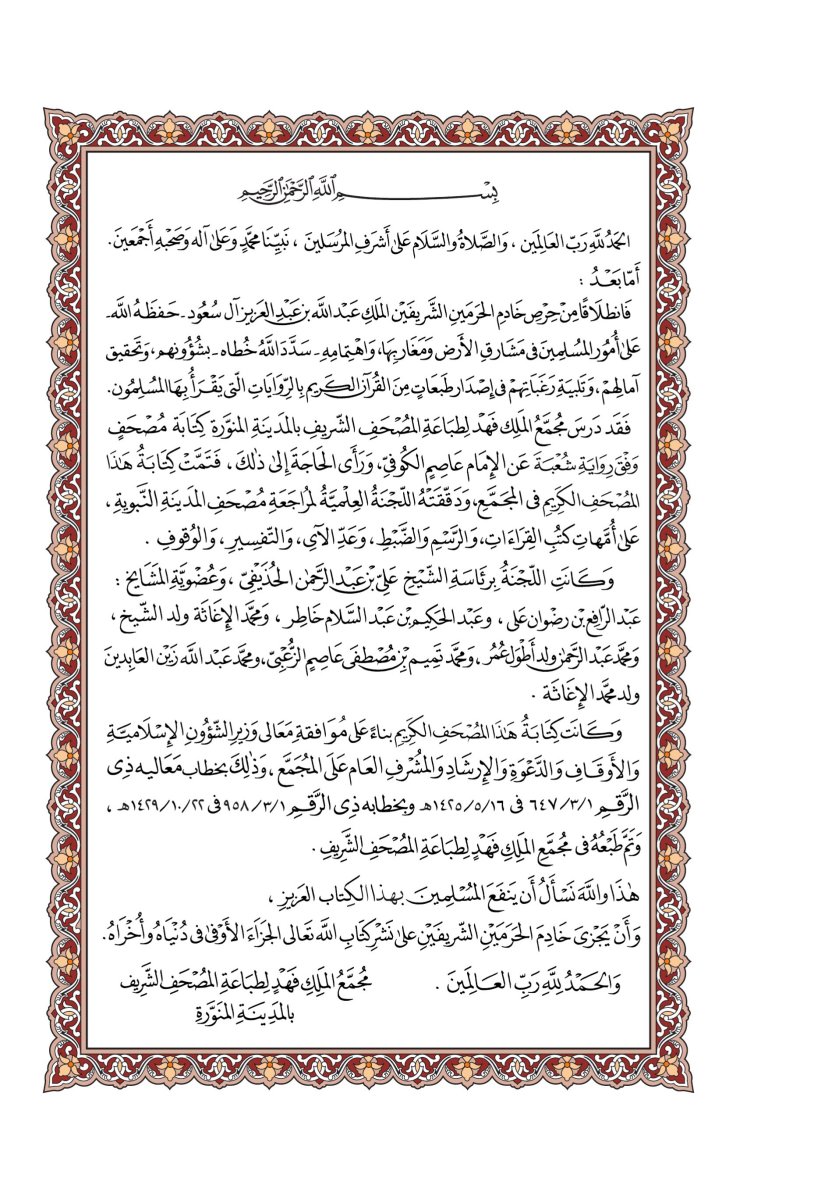 بِسْــــــمِ اللَّهِ الرَّحْمَٰنِ الرَّحِيمِ
الحَمْدُ لِلَّهِ رَبِّ العَالَمِين ، وَالصَّلَاةُ وَالسَّلَام عَلىٰ أَشرَفِ المُرْسَلِينَ ، نَبِيِّنَا محمَّدٍ وَعَلىٰ آله وَصَحْبِهِ أَجْمَعِينَ .
أَمّا بَعْدُ :
فَانطلَاقًا مِنْ حِرْصِ خَادِمِ الحَرَمَينِ الشَّرِيفَيْن المَلِكِ عَبْد اللَّه بن عَبدِ العَزيز آل سُعُود ـ حَفظَهُ اللَّه ـ
عَلىٰ أُمُورِ المُسلِمِينَ فى مَشَارقِ الأَرض وَمَغَاربِهَا، وَاهْتِمامِهِ ـ سَدَّدَ اللَّهُ خُطاه ـ بشُؤُونِهم، وَتحقيق
آمالِهمْ، وَتلبيَةِ رَغبَاتِهمْ فى إِصْدَار طبَعَاتٍ مِنَ القُرآن الكَريم بالرِّوَايَاتِ الَّتى يَقْرَأُ بهَا المُسلِمُون.
فَقَد دَرَسَ مُجَمَّعُ المَلِك فَهَدْ لِطبَاعَةِ المُصْحَفِ الشَّرِيفِ بالمَدِينَةِ المنَوَّرَة كِتَابَةَ مُصْحَفٍ
وَفْقَ رِوَايَةِ شُعْبَةَ عَن الإِمَام عَاصِمٍ الكُوفِىِّ، وَرَأَى الحَاجَةَ إِلىٰ ذٰلكَ ، فَتَمَّتْ كِتَابَةُ هَٰذَا
المُصْحَفِ الكَرِيمِ فى المجَمَّعِ، وَدَقَّقَتْهُ اللَّجْنَةُ العِلْميَّةُ لمُرَاجَعَةِ مُصْحَفِ المَدينَةِ النَّبَويةِ ،
عَلىٰ أُمَّهاتِ كتُبِ القِرَاءَاتِ، وَالرَّسْمِ وَالضَّبْطِ ، وَعَدِّ الآىِ، وَالتَّفسِيرِ ، وَالوُقوفِ .
وَكَانَتِ اللَّجْنَةُ برئَاسَةِ الشَّيْخِ عَلىِّ بْن عَبْدِ الرَّحمٰن الحُذَيْفِىِّ ، وَعُضْوِيَّةِ المَشَايخ :
عَبد الرَّافع بن رضْوان عَلى ، وعَبد الحَكِيم بن عَبد السَّلام خَاطِر ، وَمحمَّد الإغَاثَة ولد الشَّيخ ،
وَمحمَّد عَبد الرَّحمٰن ولد أَطْوَل عُمُر ، وَمحمَّد تَمِيم بْن مُصْطَفَى عَاصِمٍ الزُّعْبِىّ، ومحمَّد عَبد اللَّه زَيْن العَابِدين
ولد محمَّد الإغَاثَة .
وَكَانَت كِتَابَةُ هَٰذَا المُصْحَفِ الكَرِيمِ بناءً عَلىٰ مُوَافقةِ مَعَالى وَزيرِ الشّؤُونِ الإِسْلَاميَّةِ
وَالأَوقَافِ وَالدَّعْوَةِ وَالإِرشَادِ وَالمُشْرفِ العَام عَلىٰ المُجَمَّعِ ، وَذٰلِكَ بخطاب مَعَاليه ذى
الرَّقم ٦٤٧/٣/١ فى ١٤٢٥/٥/١٦هـ وبخطابه ذِى الرَّقمِ ٩٥٨/٣/١ فى ١٤٢٩/١٠/٢٢هـ ،
وَتَمَّ طَبْعُهُ فى مُجَمَّعِ المَلِكِ فَهْدٍ لِطبَاعَةِ المُصْحَفِ الشَّريفِ .
هٰذَا واللَّهَ نَسْأَلُ أَن يَنفَعَ المُسْلِمِينَ بهذا الكِتَاب العَزيزِ ،
وَأَنْ يَجْزِىَ خَادِمَ الحَرَمَيْنِ الشَّريفَيْنِ عَلىٰ نَشْر كِتَابِ اللَّه تعَالى الجَزَاءَ الأَوْفىٰ فى دُنْيَاهُ وأُخْرَاهُ .
وَالحَمْدُ لِلَّهِ رَبِّ العَالَمِينَ .
مُجَمَّعُ المَلِكِ فَهْدٍ لِطبَاعَةِ المُصْحَفِ الشَّرِيف
بالمَدِينَةِ المنَوَّرَةِ